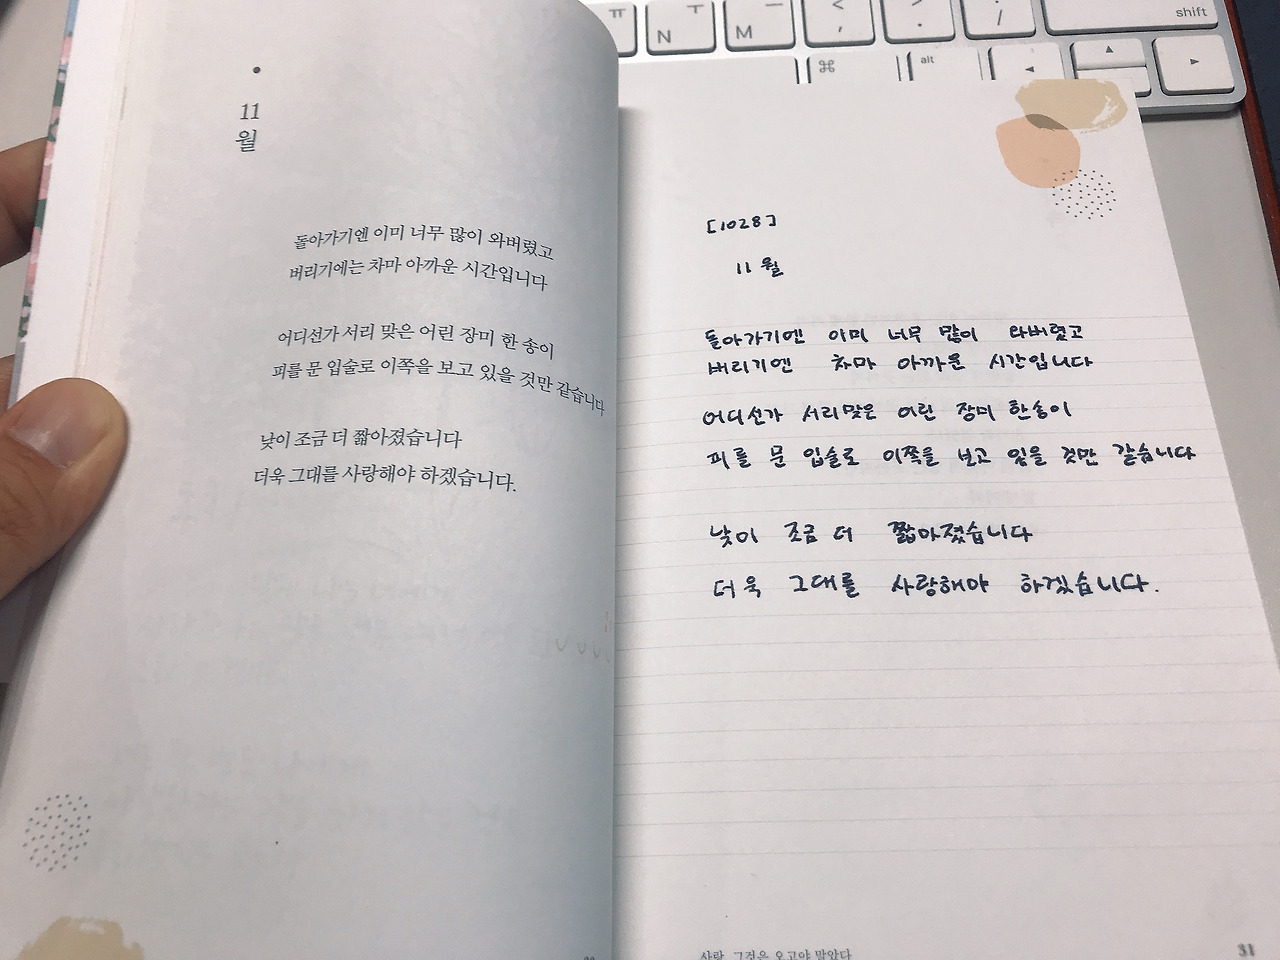 ㅠ
ㅜ
N
ㅡ
M
<
,
>
.
/
shift
⌘
alt
◀
▲
▶
•
11
월
돌아가기엔 이미 너무 많이 와버렸고
버리기에는 차마 아까운 시간입니다
어디선가 서리 맞은 어린 장미 한 송이
피를 문 입술로 이쪽을 보고 있을 것만 같습니다
낮이 조금 더 짧아졌습니다
더욱 그대를 사랑해야 하겠습니다.
[1028]
11월
돌아가기엔 이미 너무 많이 와버렸고
버리기엔 차마 아까운 시간입니다
어디선가 서리맞은 어린 장미 한송이
피를 문 입술로 이쪽을 보고 있을 것만 같습니다
낮이 조금 더 짧아졌습니다
더욱 그대를 사랑해야 하겠습니다.
사랑, 그것은 오고야 말았다
31